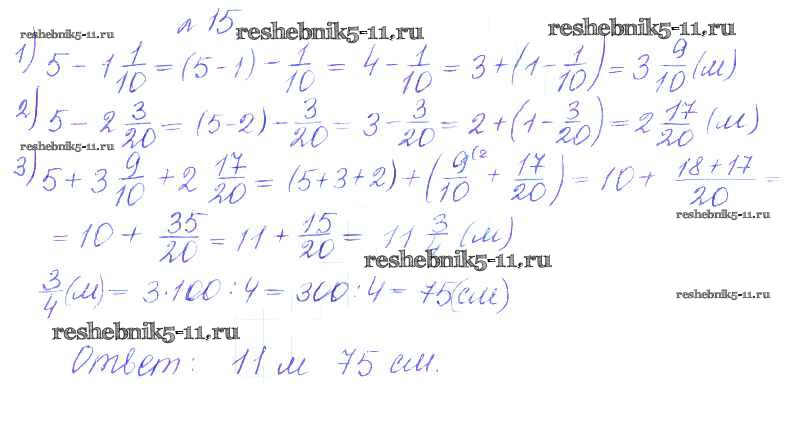 №15
reshebnik5-11.ru reshebnik5-11.ru reshebnik5-11.ru
1) 5 - 1 1/10 = (5-1) - 1/10 = 4 - 1/10 = 3 + (1 - 1/10) = 3 9/10 (м)
2) 5 - 2 3/20 = (5-2) - 3/20 = 3 - 3/20 = 2 + (1 - 3/20) = 2 17/20 (м)
reshebnik5-11.ru reshebnik5-11.ru
3) 5 + 3 9/10 + 2 17/20 = (5+3+2) + (9/10 (2 + 17/20) = 10 + 18+17/20 =
reshebnik5-11.ru
= 10 + 35/20 = 11 + 15/20 = 11 3/4 (м)
reshebnik5-11.ru
3/4 (м) = 3·100:4 = 300:4 = 75(см)
reshebnik5-11.ru
reshebnik5-11.ru
Ответ: 11 м 75 см.